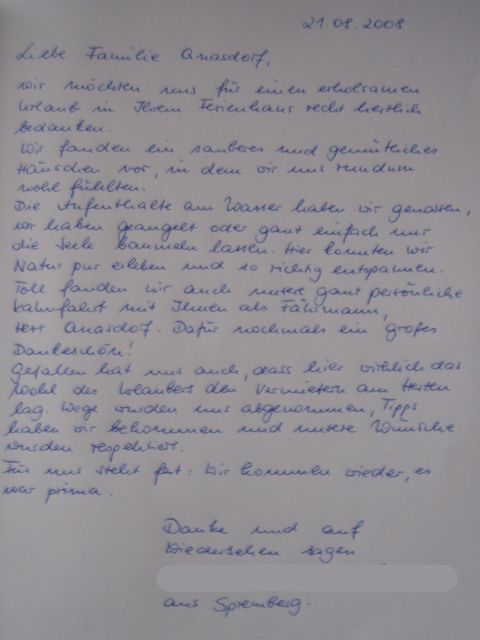 21.08.2008
Liebe Familie Anasdorf,
wir möchten uns für einen erholsamen
Urlaub in Ihrem Ferienhaus recht herzlich
bedanken.
Wir fanden ein sauberes und gemütliches
Häuschen vor, in dem wir uns rundum
wohl fühlten.
Die Aufenthalte am Wasser haben wir genossen,
wir haben geangelt oder ganz einfach nur
die Seele baumeln lassen. Hier konnten wir
Natur pur erleben und so richtig entspannen.
Toll fanden wir auch unsere ganz persönliche
Kahnfahrt mit Ihnen als Fährmann,
Herr Anasdorf. Dafür nochmals ein großes
Dankeschön!
Gefallen hat uns auch, dass hier wirklich das
Wohl des Urlaubers den Vermietern am Herzen
lag. Wege wurden uns abgenommen, Tipps
haben wir bekommen und unsere Wünsche
wurden respektiert.
Für uns steht fest: Wir kommen wieder, es
war prima.
Danke und auf
Wiedersehen sagen
aus Spremberg.